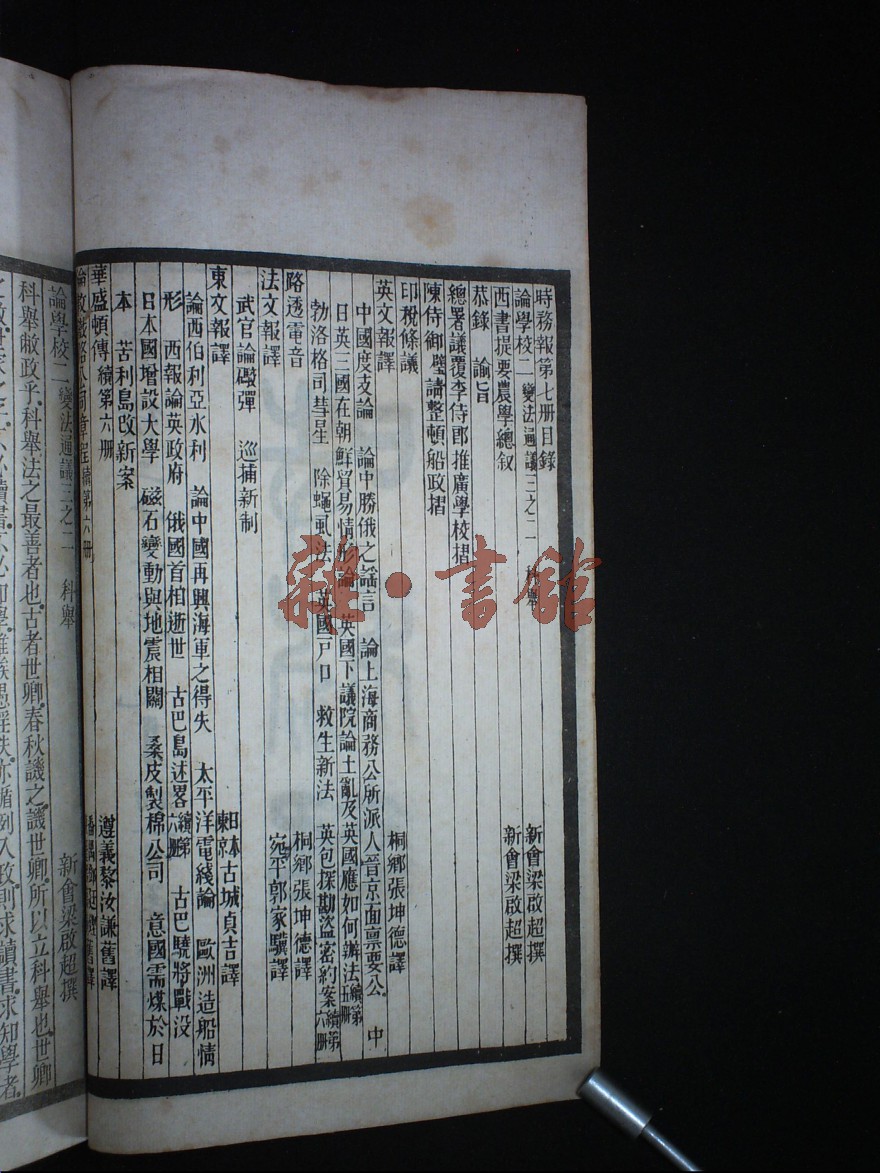 時務報第七册目錄
論學校二 變法通議三之二 科舉 新會梁啟超撰
西書提要農學總叙 新會梁啟超撰
恭錄 諭旨
總署議覆李侍郎推廣學校摺
陳侍御璧請整頓船政摺
印稅條議
英文報譯 桐鄉張坤德譯
中國度支論 論中勝俄之謡言 論上海商務公所派人晉京面禀要公 中
日英三國在朝鮮貿易情形論 英國下議院論土亂及英國應如何辦法續第五册
勃洛格司彗星 除蠅風法 英國戸口 救生新法 英包探勘盜密約案續第六册
路透電音 桐鄉張坤德譯
法文報譯 宛平郭家驥譯
武官論礮彈 巡捕新制
東文報譯 日本東京古城貞吉譯
論西伯利亞水利 論中國再興海軍之得失 太平洋電綫論 歐洲造船情
形 西報論英政府 俄國首相逝世 古巴島述畧續第六册 古巴驍將戰没
日本國增設大學 磁石變動與地震相關 桑皮製棉公司 意國需煤於日
本 苦利島改新案
華盛頓傳續第六册 遵義黎汝謙舊譯
章程續第六册 舊譯
論學校二 變法通議三之二 科舉 新會梁啟超撰
科舉敝政乎科舉法之最善者也古者世卿春秋譏之譏世卿所以立科舉也世卿
讀書求知學者
雜·書館